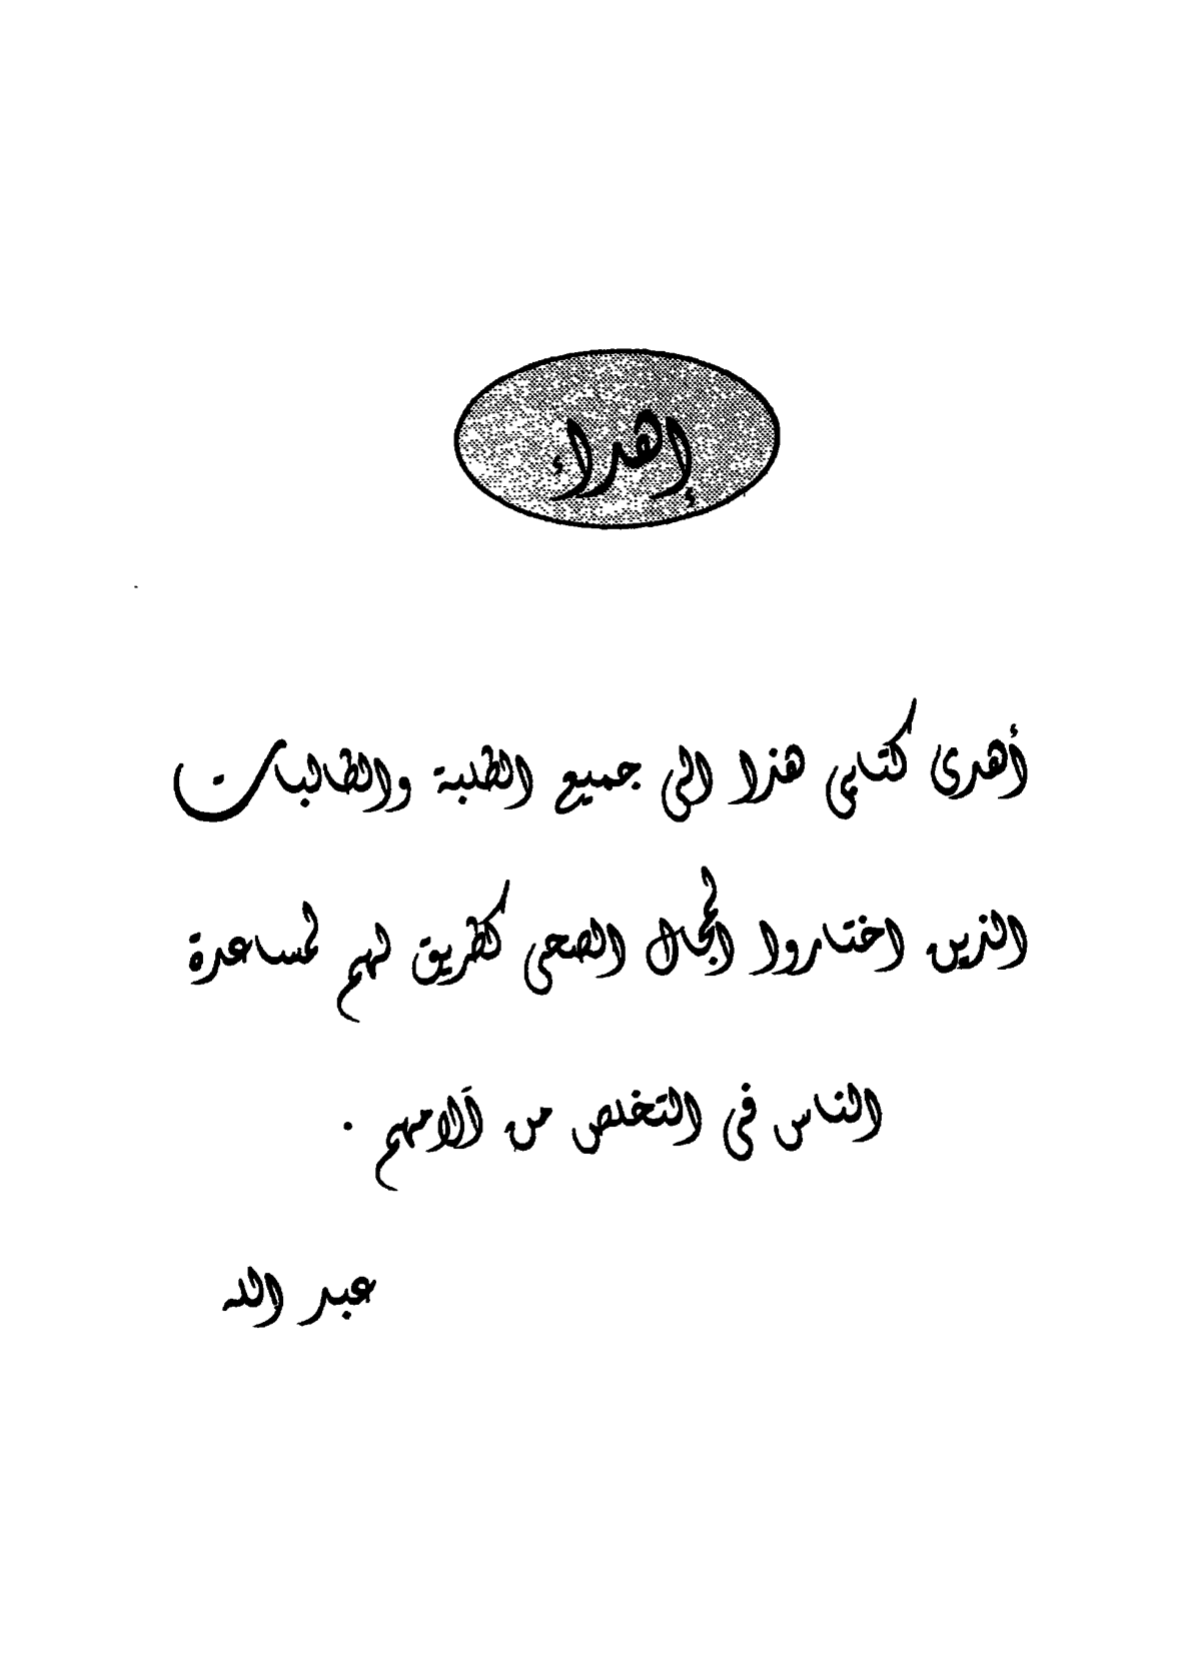 إهداء
أهدى كتابى هذا الى جميع الطلبة والطالبات
الذين اختاروا المجال الصحى كطريق لهم لمساعدة
الناس فى التخلص من آلامهم .
عبد الله